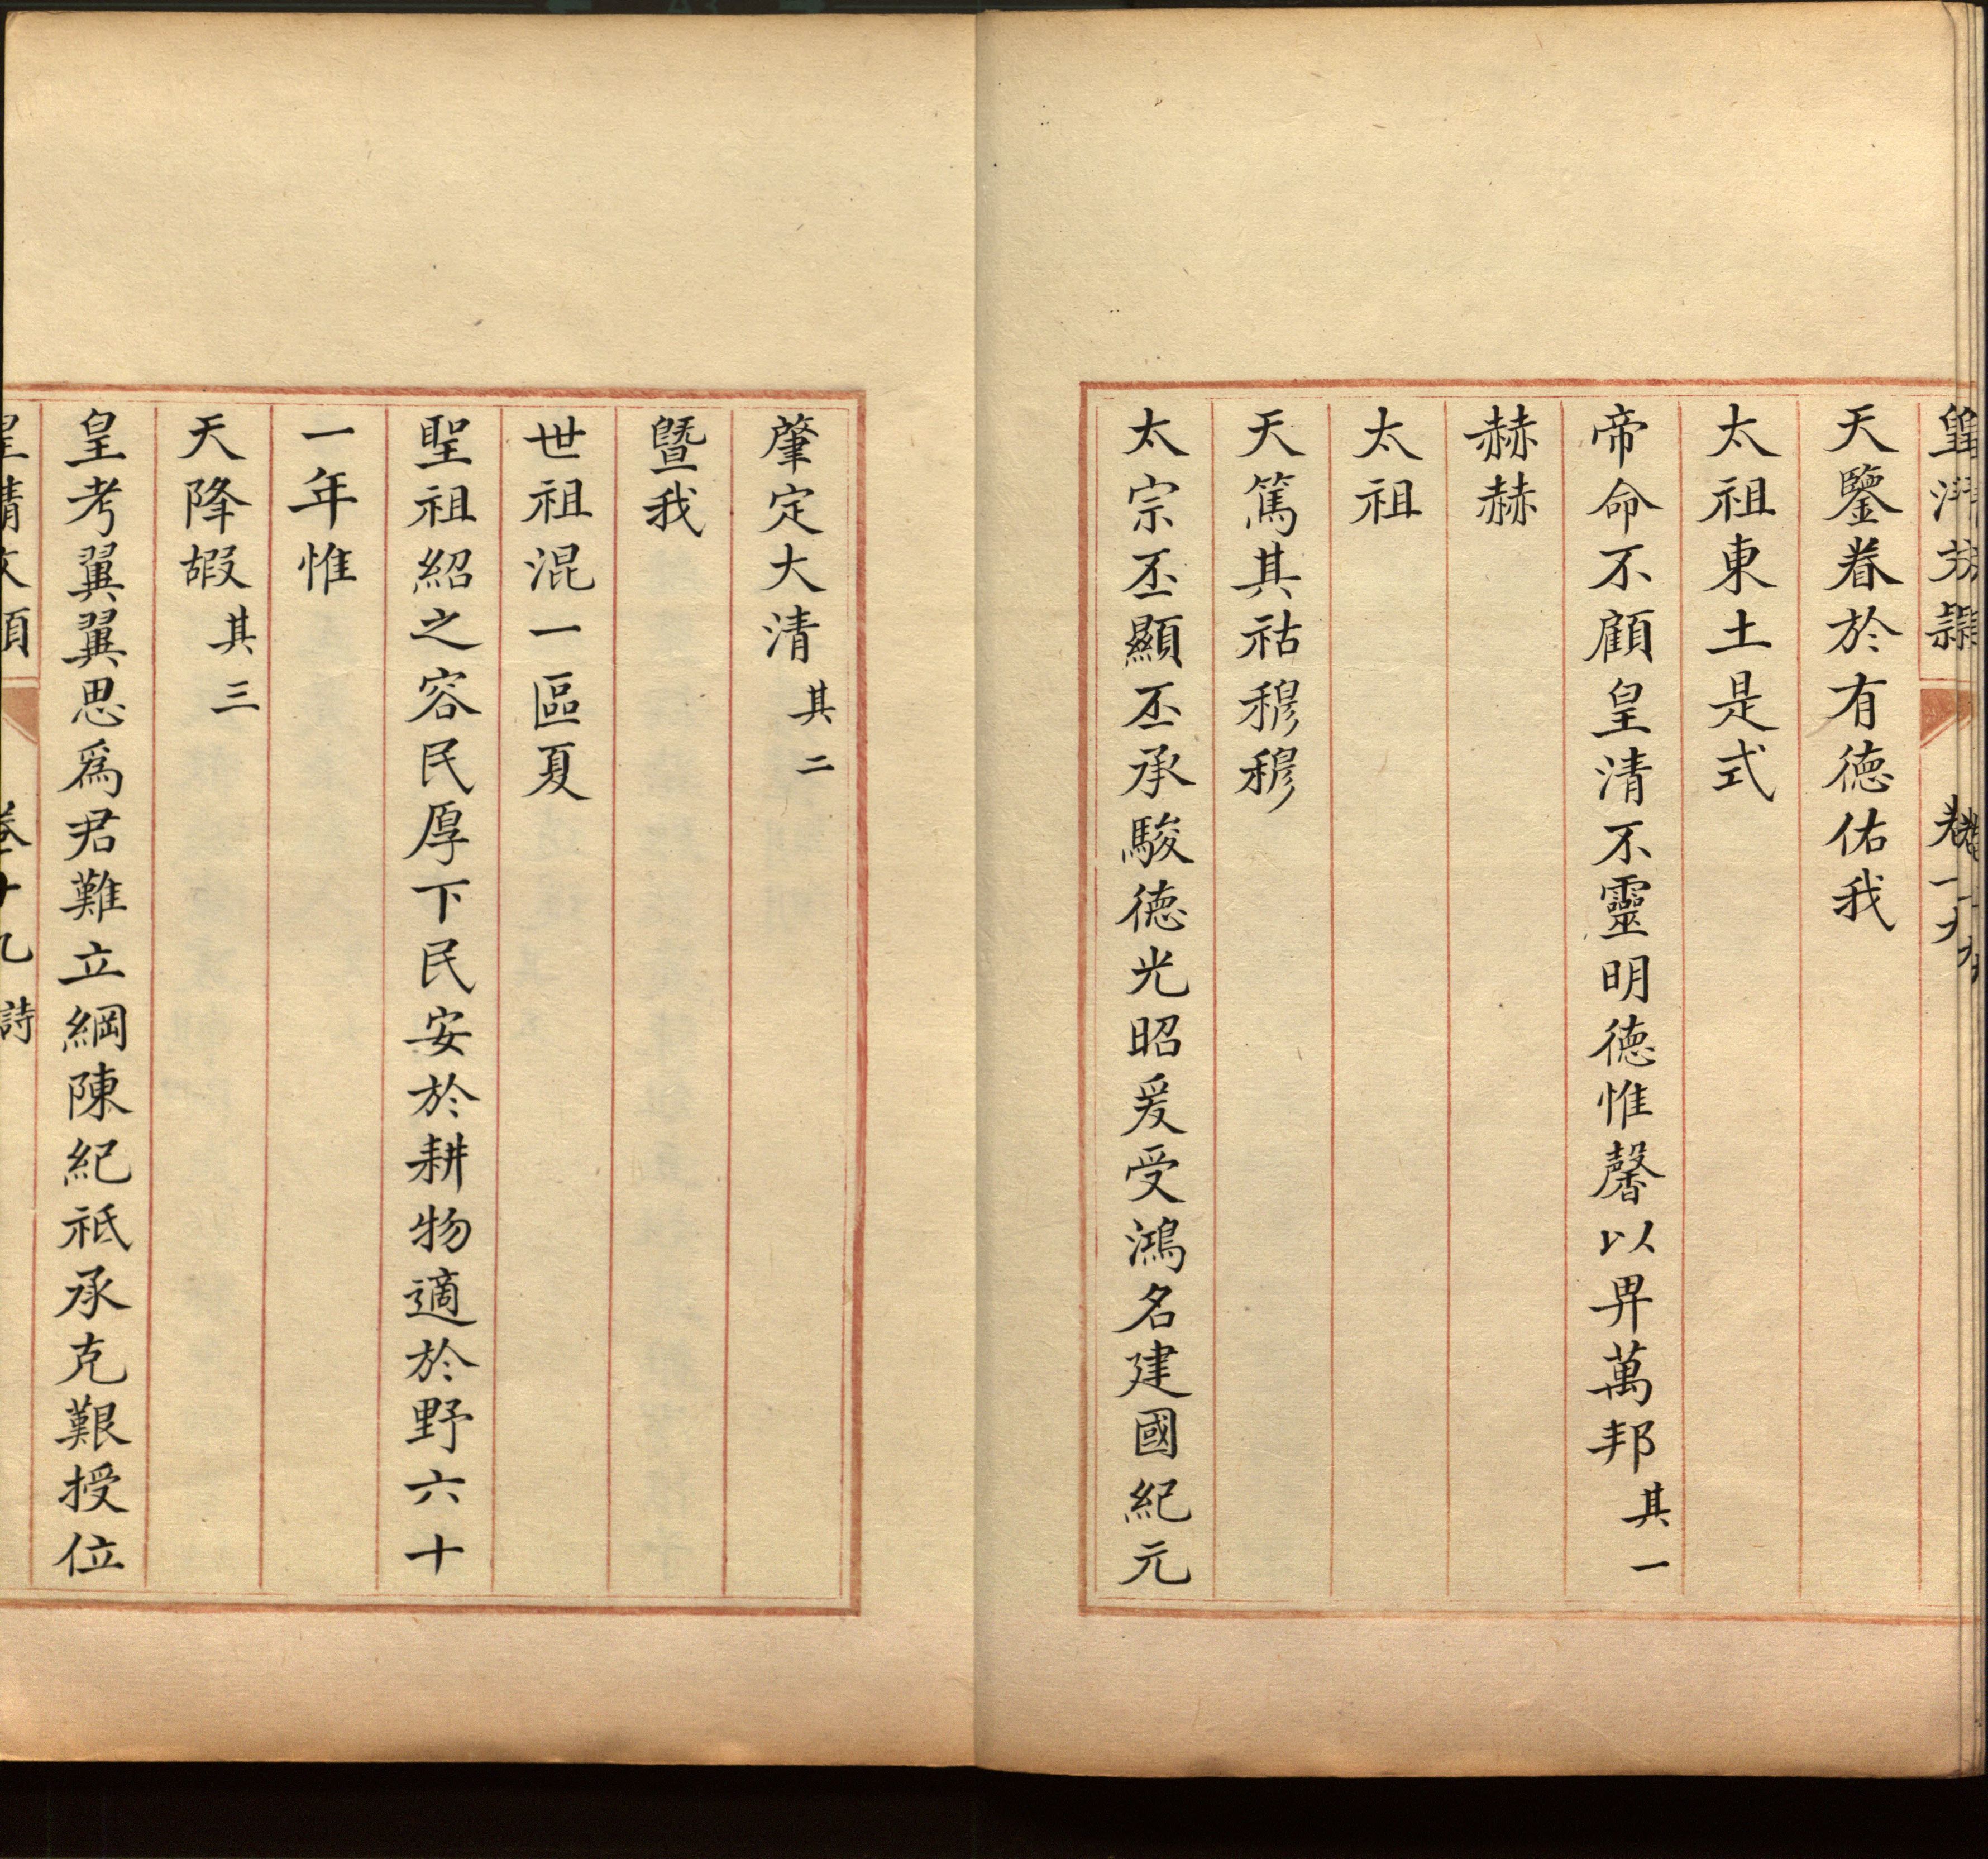 天鑒眷於有德佑我
太祖東土是式
帝命不顧皇清不靈明德惟馨以畀萬邦其一
赫赫
太祖
天篤其祜穆穆
太宗丕顯丕承駿德光昭爰受鴻名建國紀元
肇定大清其二
曁我
世祖混一區夏
聖祖紹之容民厚下民安於耕物適於野六十
一年惟
天降嘏其三
皇考翼翼思爲君難立綱陳紀祗承克艱授位
皇清文頴 卷十九 詩